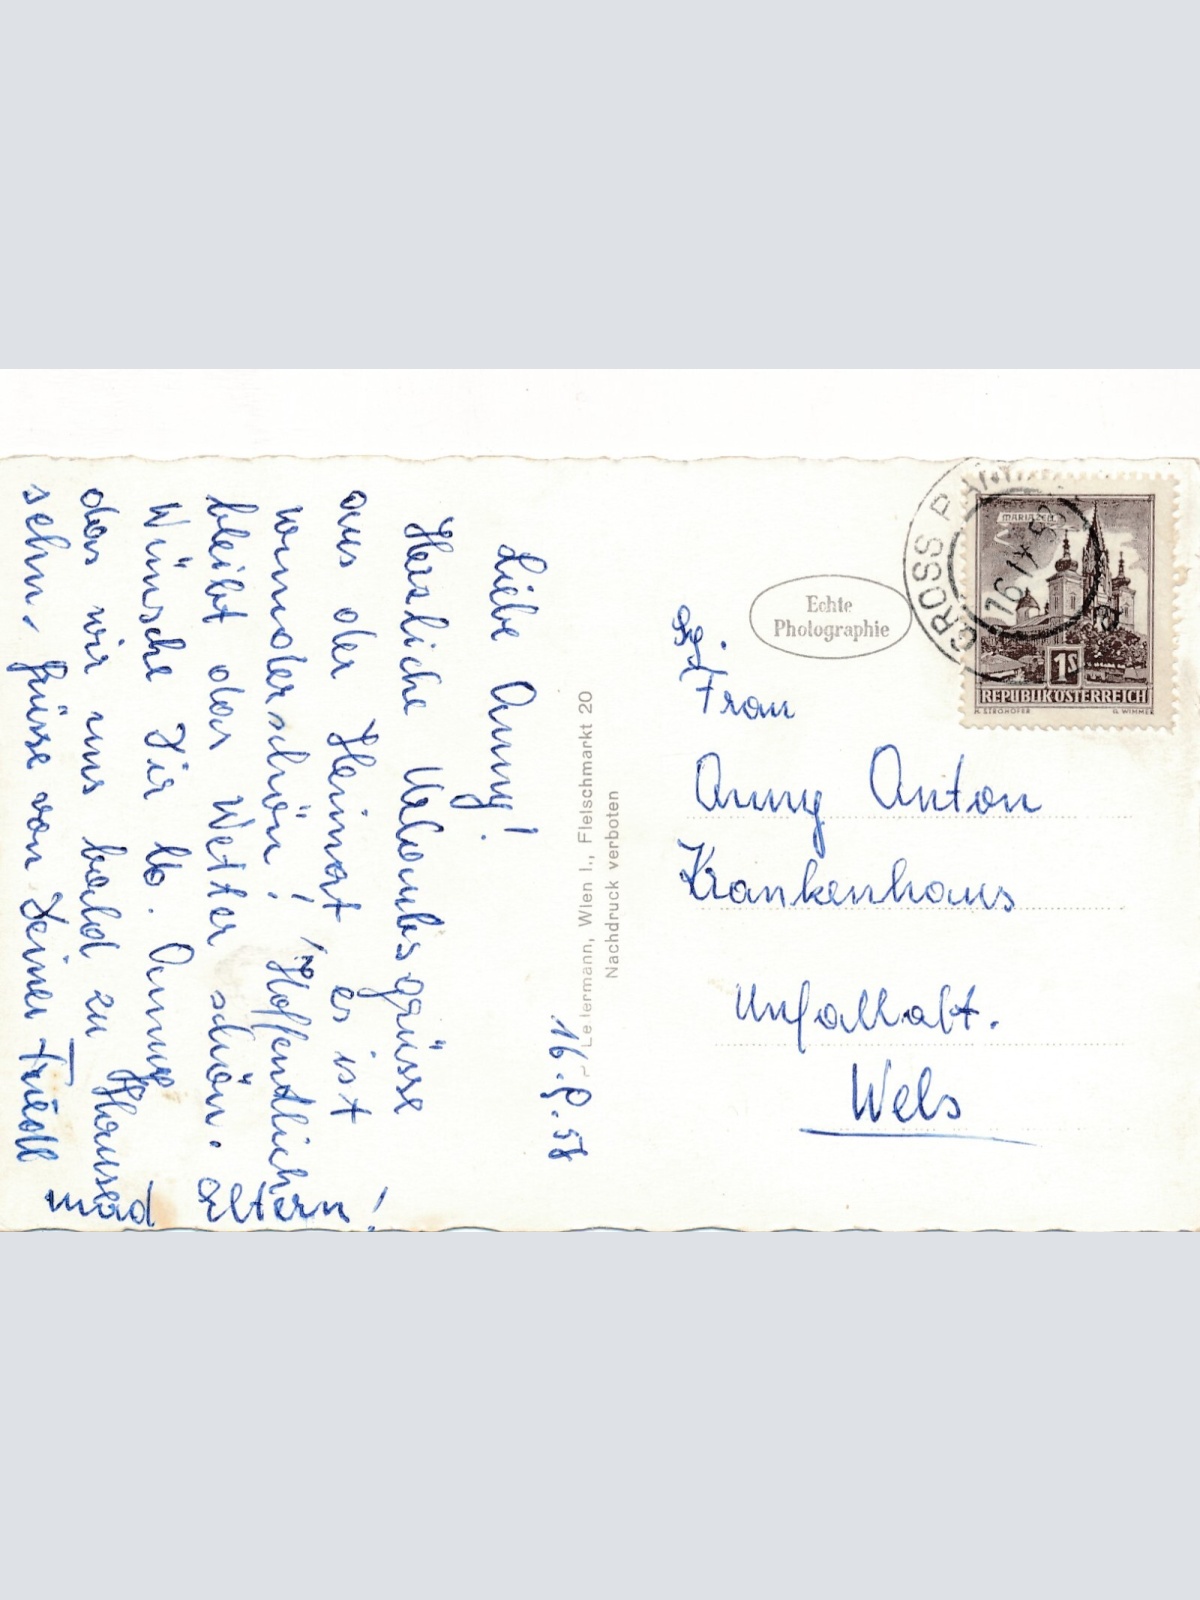 16.9.58
Liebe Anny!
Herzliche Urlaubsgrüsse
aus der Heimat, es ist
wunderschön! Hoffentlich
bleibt das Wetter schön.
Wünsche Dir lb. Anny
das wir uns bald zu Hause
sehn. Grüsse von Deiner Friedl
und Eltern!
Ledermann, Wien I., Fleischmarkt 20
Nachdruck verboten
Echte
Photographie
GROSS
16.IX.58
MARIAZELL
1S
REPUBLIK ÖSTERREICH
H. STROHOFER G. WIMMER
Frau
Anny Anton
Krankenhaus
Unfallabt.
Wels